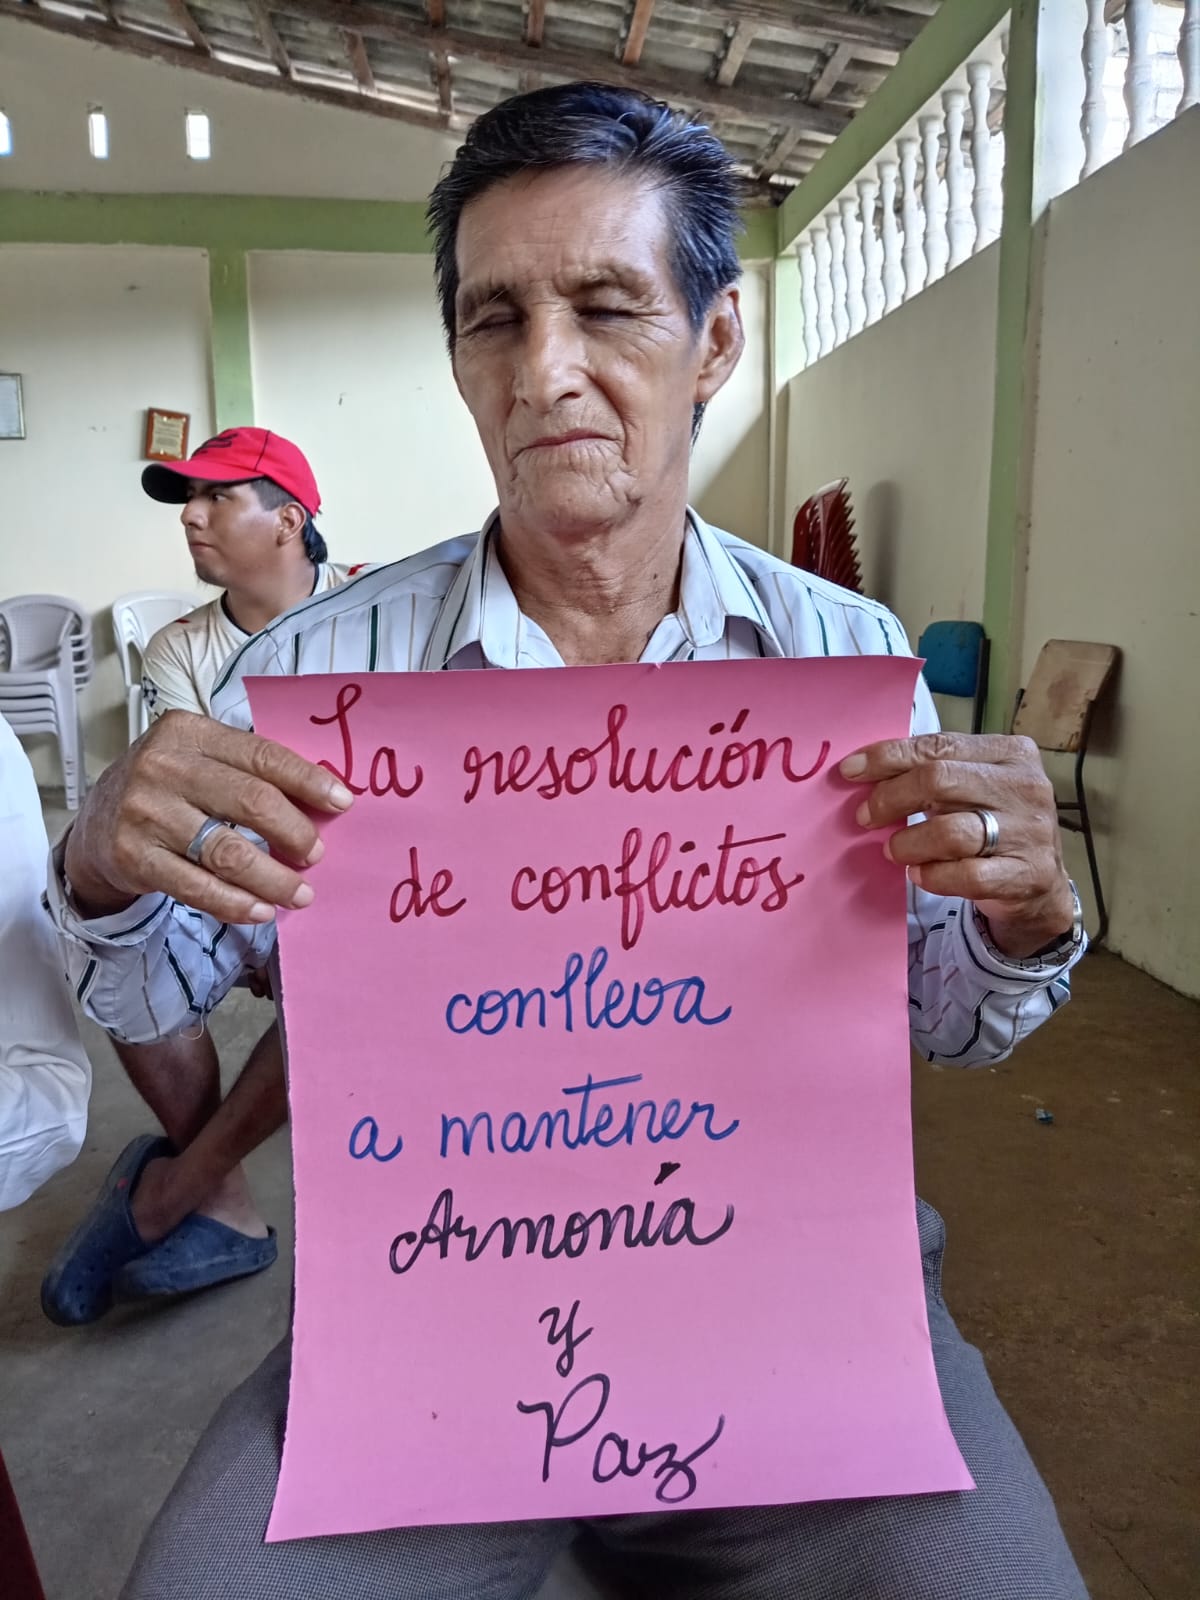 La resolución
de conflictos
conlleva
a mantener
Armonía
y
Paz